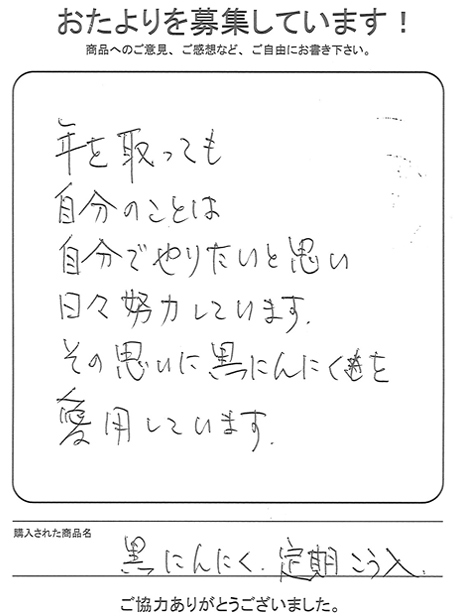 おたよりを募集しています！
商品へのご意見、ご感想など、ご自由にお書き下さい。
年を取っても
自分のことは
自分でやりたいと思い
日々努力しています.
その思いに黒にんにくを
愛用しています.
購入された商品名
黒にんにく.定期こう入.
ご協力ありがとうございました。